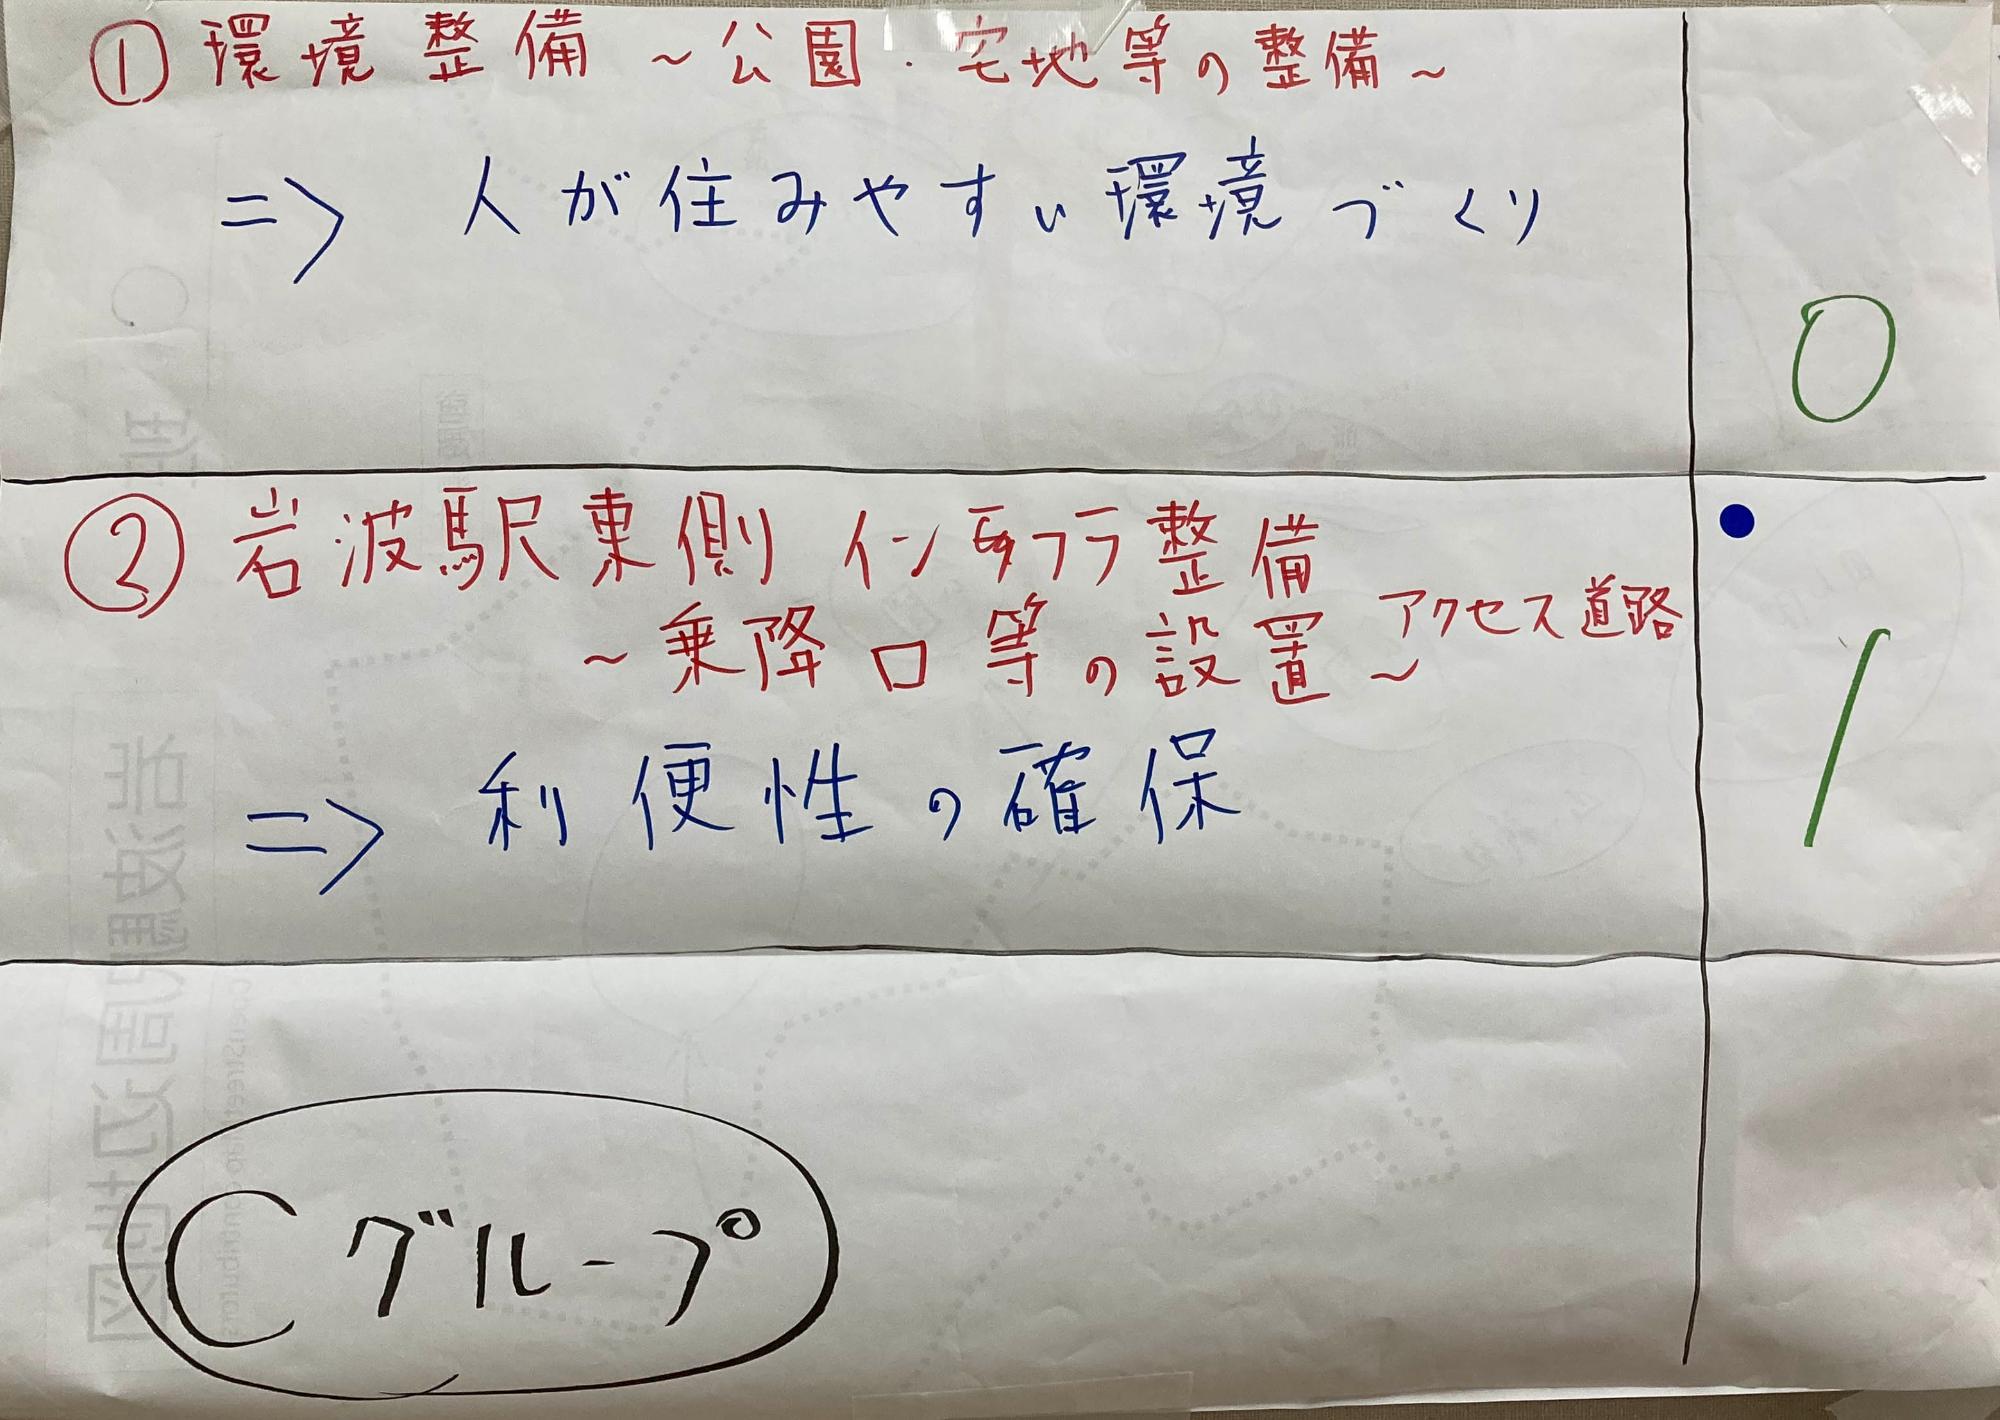 ① 環境整備 ~公園・宅地等の整備~
⇒ 人が住みやすい環境づくり
0
② 岩波駅東側 インフラ整備
~乗降口等の設置~ アクセス道路
⇒ 利便性の確保
1
Cグループ